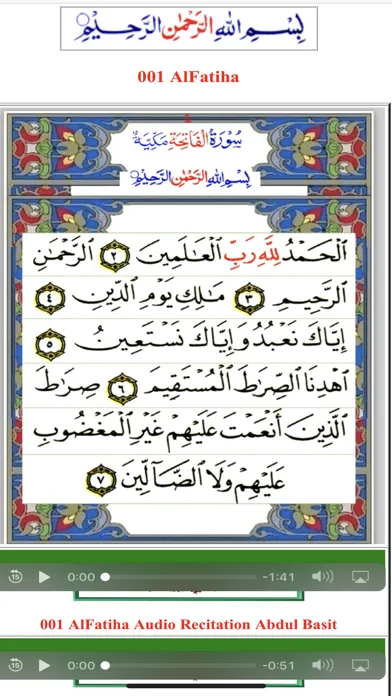 بِسْمِ اللهِ الرَّحْمٰنِ الرَّحِيْمِ
001 AlFatiha
سُوْرَةُ الْفَاتِحَةِ مَكِّيَّةٌ
بِسْمِ اللهِ الرَّحْمٰنِ الرَّحِيْمِ
اَلْحَمْدُ لِلَّهِ رَبِّ الْعَالَمِينَ ٢ الرَّحْمَٰنِ
الرَّحِيمِ ٣ مَالِكِ يَوْمِ الدِّينِ ٤
إِيَّاكَ نَعْبُدُ وَإِيَّاكَ نَسْتَعِينُ ٥
اهْدِنَا الصِّرَاطَ الْمُسْتَقِيمَ ٦ صِرَاطَ
الَّذِينَ أَنْعَمْتَ عَلَيْهِمْ غَيْرِ الْمَغْضُوبِ
عَلَيْهِمْ وَلَا الضَّآلِّينَ ٧
15 0:00 -1:41
001 AlFatiha Audio Recitation Abdul Basit
15 0:00 -0:51